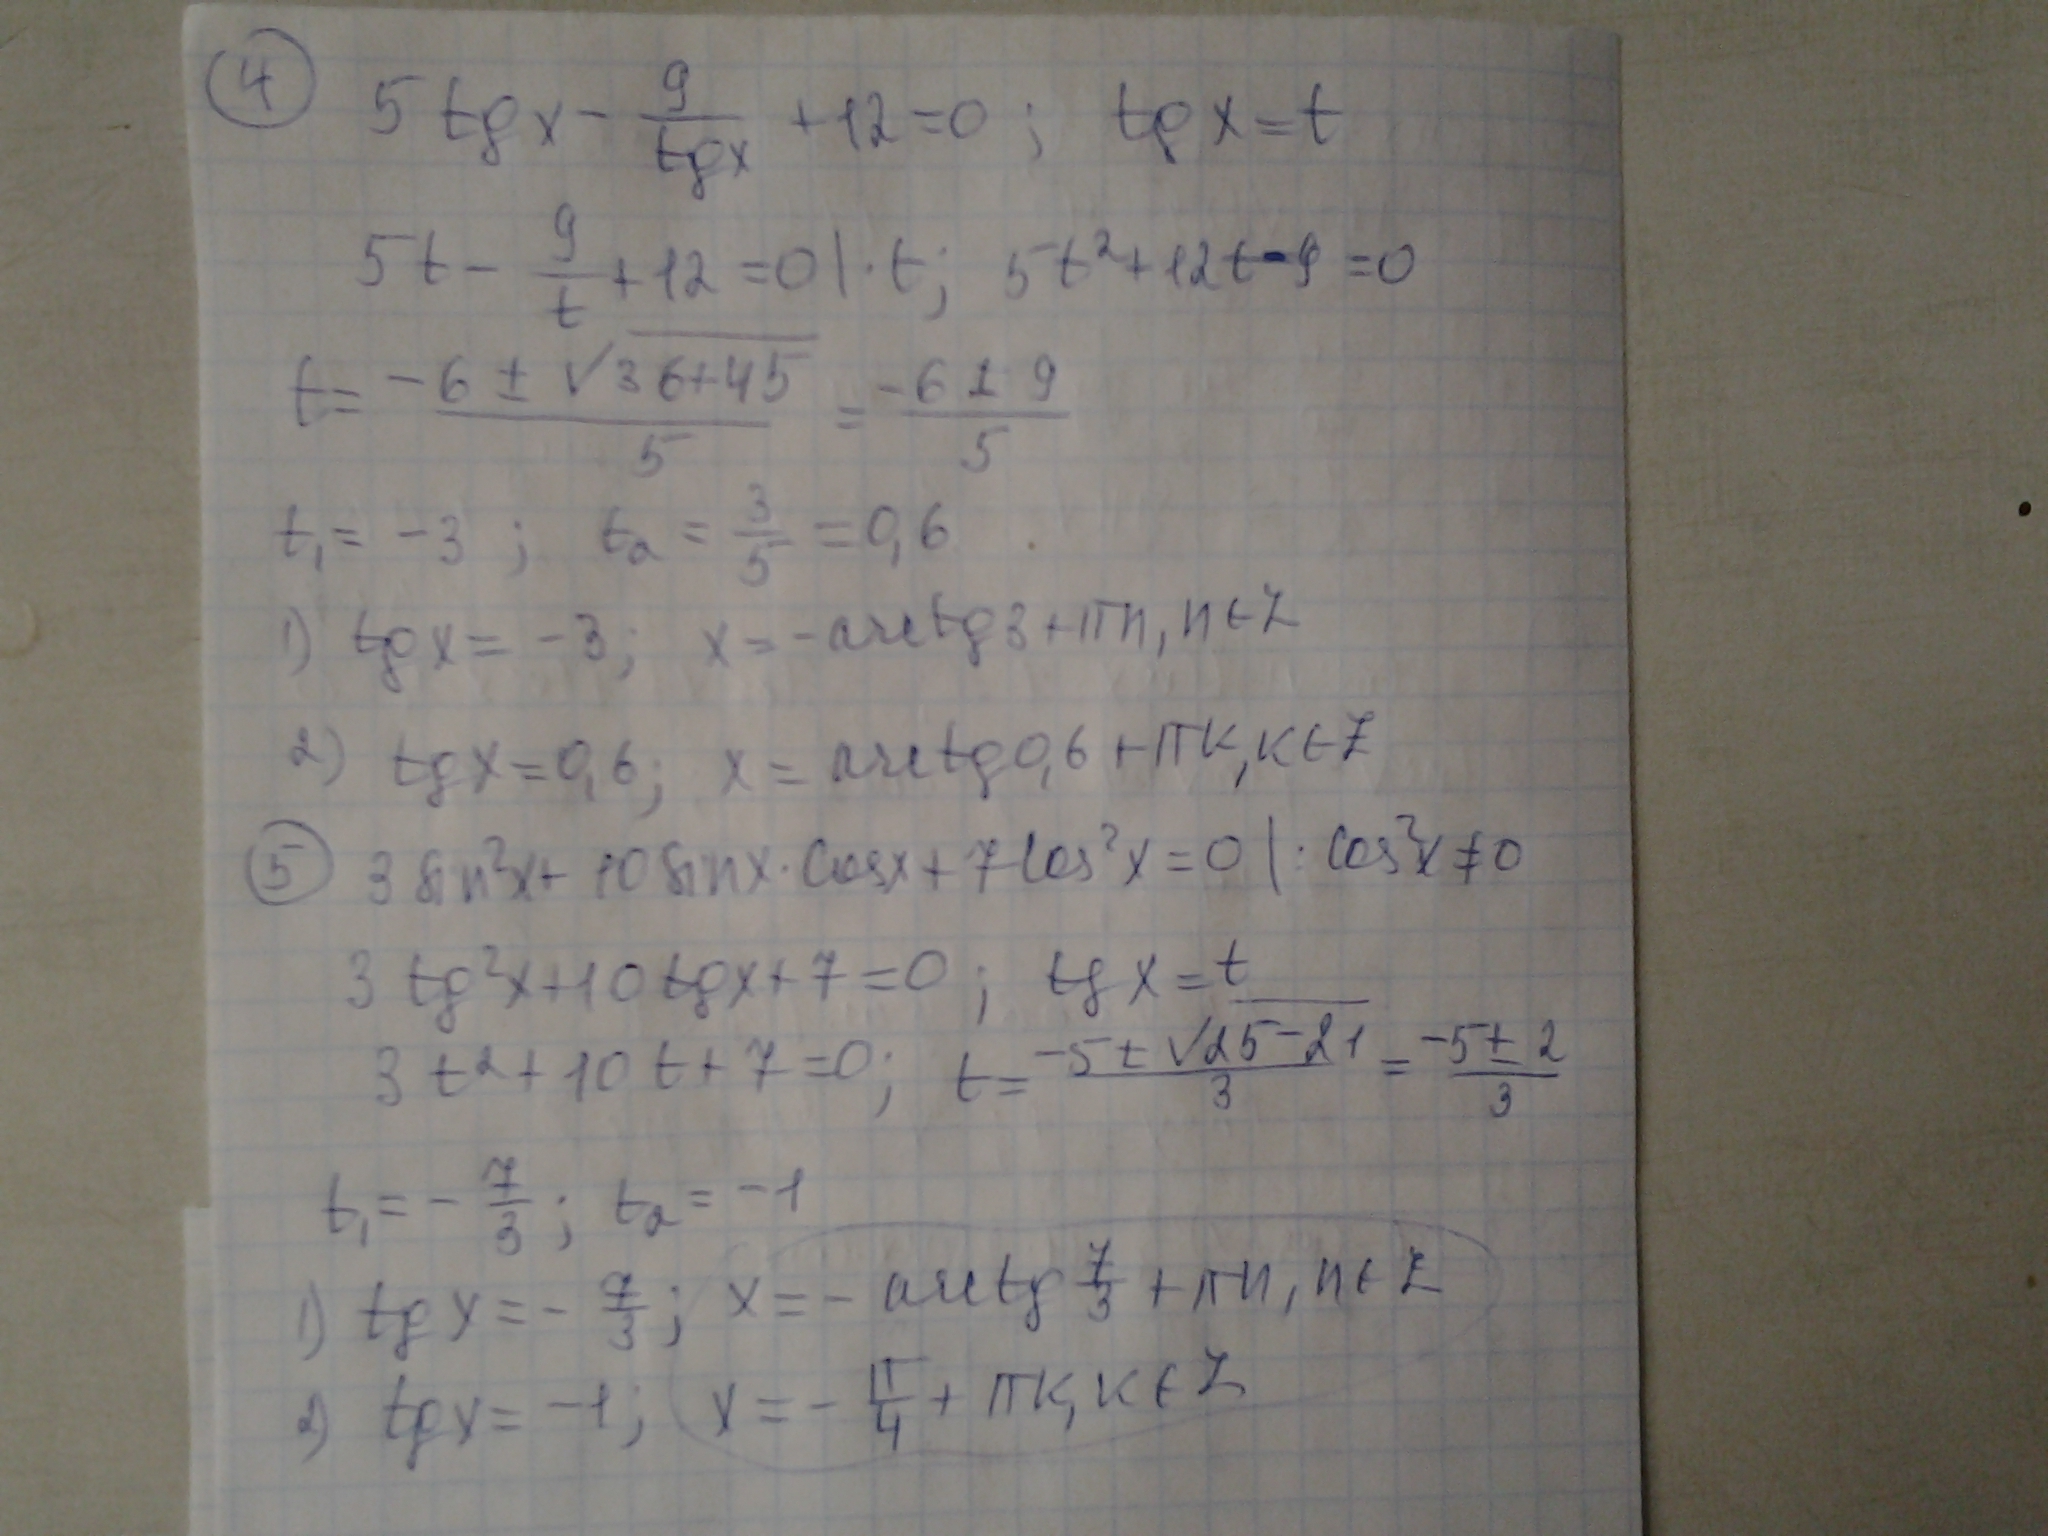 ④ 5 tgx - 9/tgx + 12 = 0 ; tg x = t
5t - 9/t + 12 = 0 | · t ; 5t² + 12t - 9 = 0
t = (-6 ± √(36+45))/5 = (-6 ± 9)/5
t₁ = -3 ; t₂ = 3/5 = 0,6
1) tg x = -3 ; x = -arctg 3 + πn, n ∈ Z
2) tg x = 0,6 ; x = arctg 0,6 + πk, k ∈ Z
⑤ 3 sin²x + 10 sinx · cosx + 7 cos²x = 0 | : cos²x ≠ 0
3 tg²x + 10 tgx + 7 = 0 ; tg x = t
3t² + 10t + 7 = 0 ; t = (-5 ± √(25-21))/3 = (-5 ± 2)/3
t₁ = -7/3 ; t₂ = -1
1) tg x = -7/3 ; x = -arctg 7/3 + πn, n ∈ Z
2) tg x = -1 ; x = -π/4 + πk, k ∈ Z